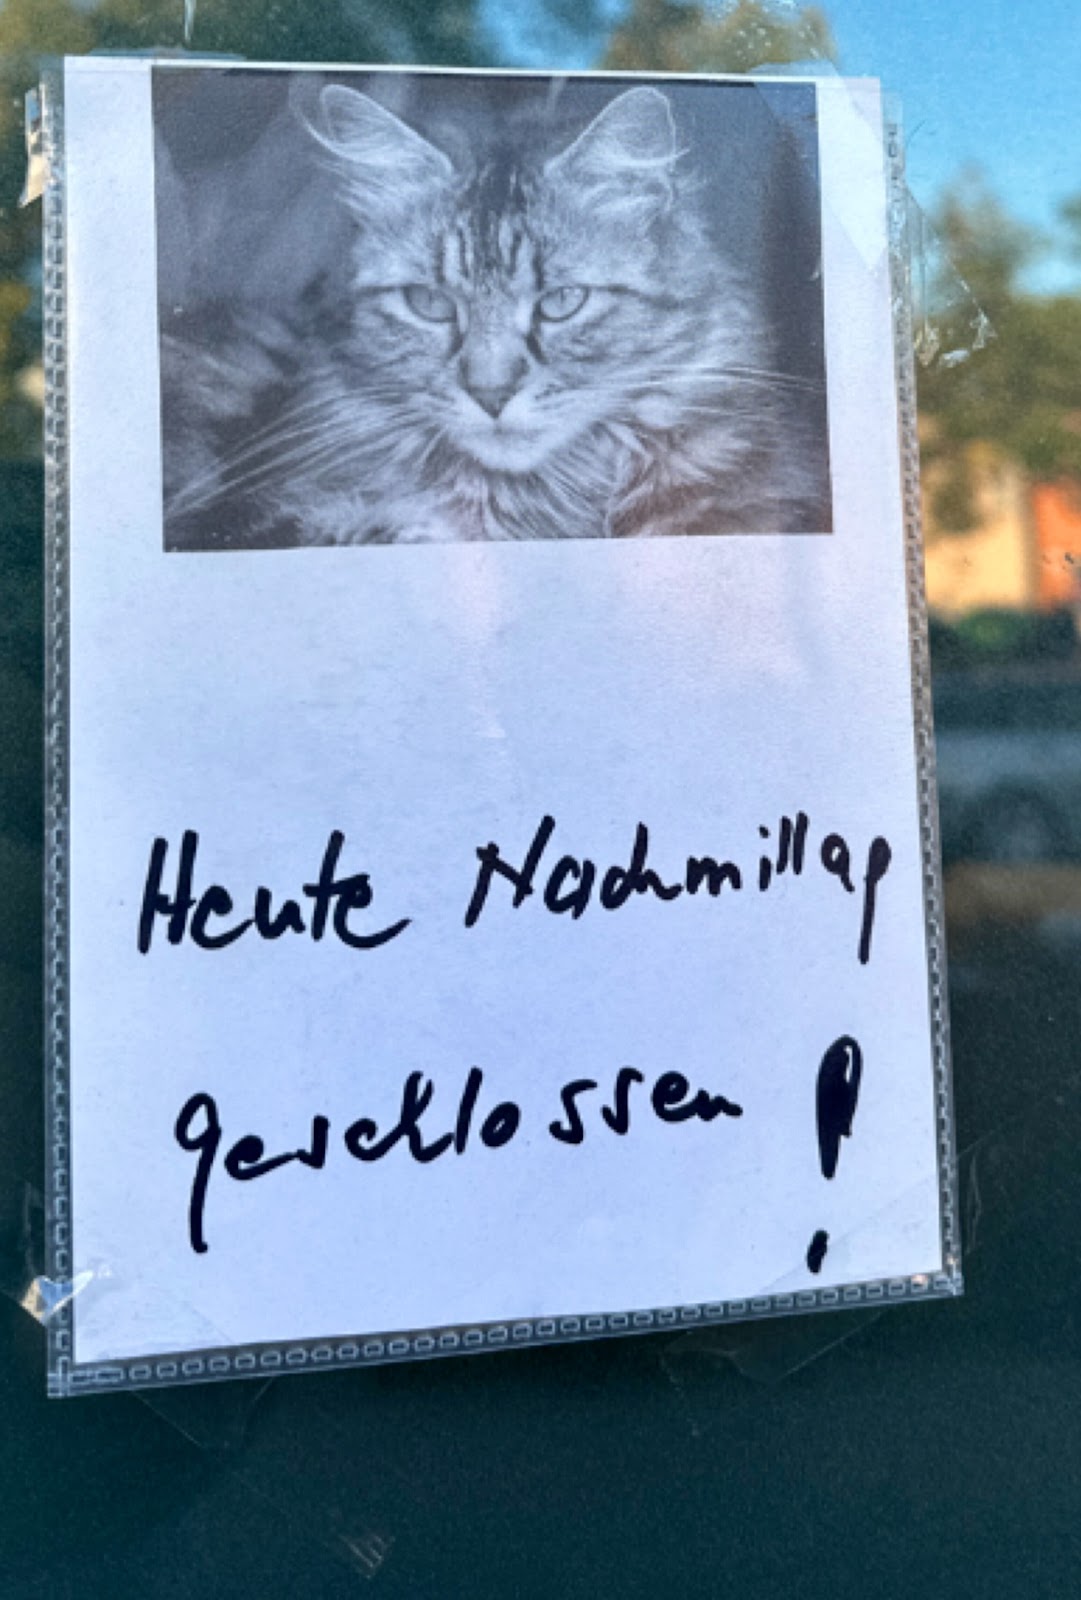 Heute Nachmittag
geschlossen!